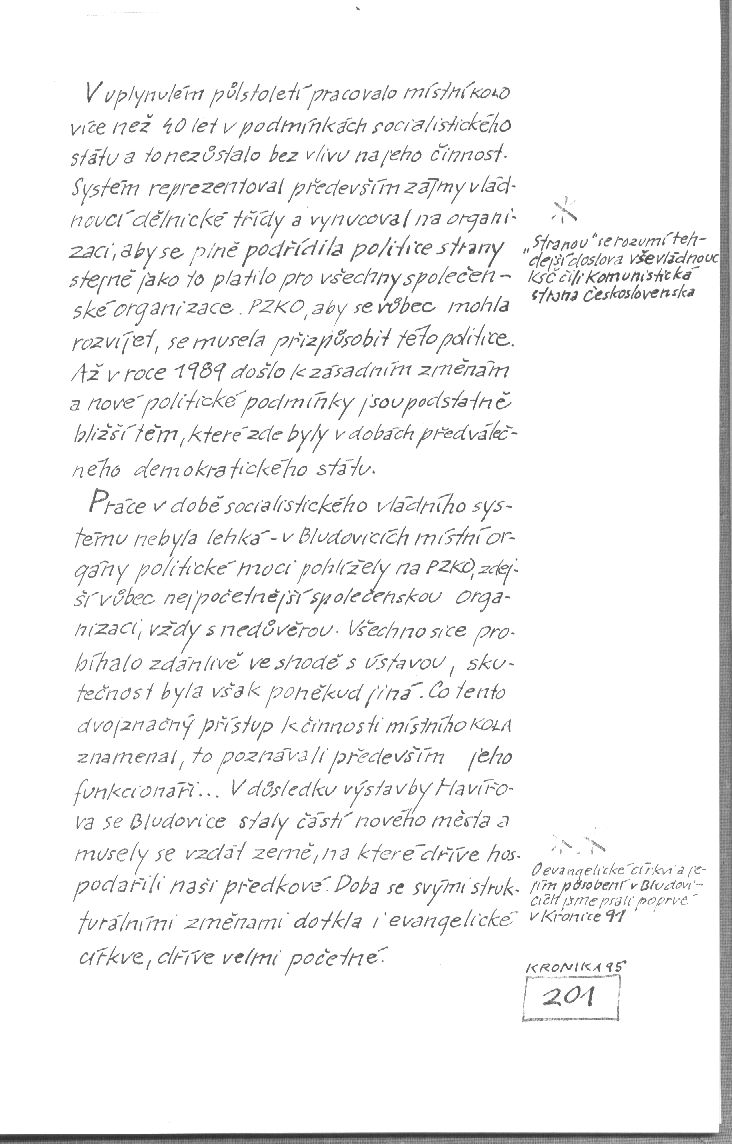 V uplynulém půlstoletí pracovalo místní KOLO
více než 40 let v podmínkách socialistického
státu a to nezůstalo bez vlivu na jeho činnost.
Systém reprezentoval především zájmy vlád-
noucí dělnické třídy a vynucoval na organi-
zaci, aby se plně podřídila politice strany
stejně jako to platilo pro všechny společen-
ské organizace. PZKO, aby se vůbec mohla
rozvíjet, se musela přizpůsobit této politice.
Až v roce 1989 došlo k zásadním změnám
a nové politické podmínky jsou podstatně
bližší těm, které zde byly v dobách předváleč-
ného demokratického státu.
Práce v době socialistického vládního sys-
tému nebyla lehká - v Bludovicích místní or-
gány politické moci pohlížely na PZKO, zdej-
ší vůbec nejpočetnější společenskou orga-
nizaci, vždy s nedůvěrou. Všechno sice pro-
bíhalo zdánlivě ve shodě s ústavou, sku-
tečnost byla však poněkud jiná. Co tento
dvojznačný přístup k činnosti místního KOLA
znamenal, to poznávali především jeho
funkcionáři... V důsledku výstavby Havířo-
va se Bludovice staly částí nového města a
musely se vzdát země, na které dříve hos-
podařili naši předkové. Doba se svými struk-
turálními změnami dotkla i evangelické
církve, dříve velmi početné.
„Stranou" se rozumí teh-
dejší doslova vševládnouc
KSČ čili Komunistická
strana Československa
O evangelické církvi a je-
jím působení v Bludovi-
cích jsme psali poprvé
v Kronice 91
KRONIKA 95
201